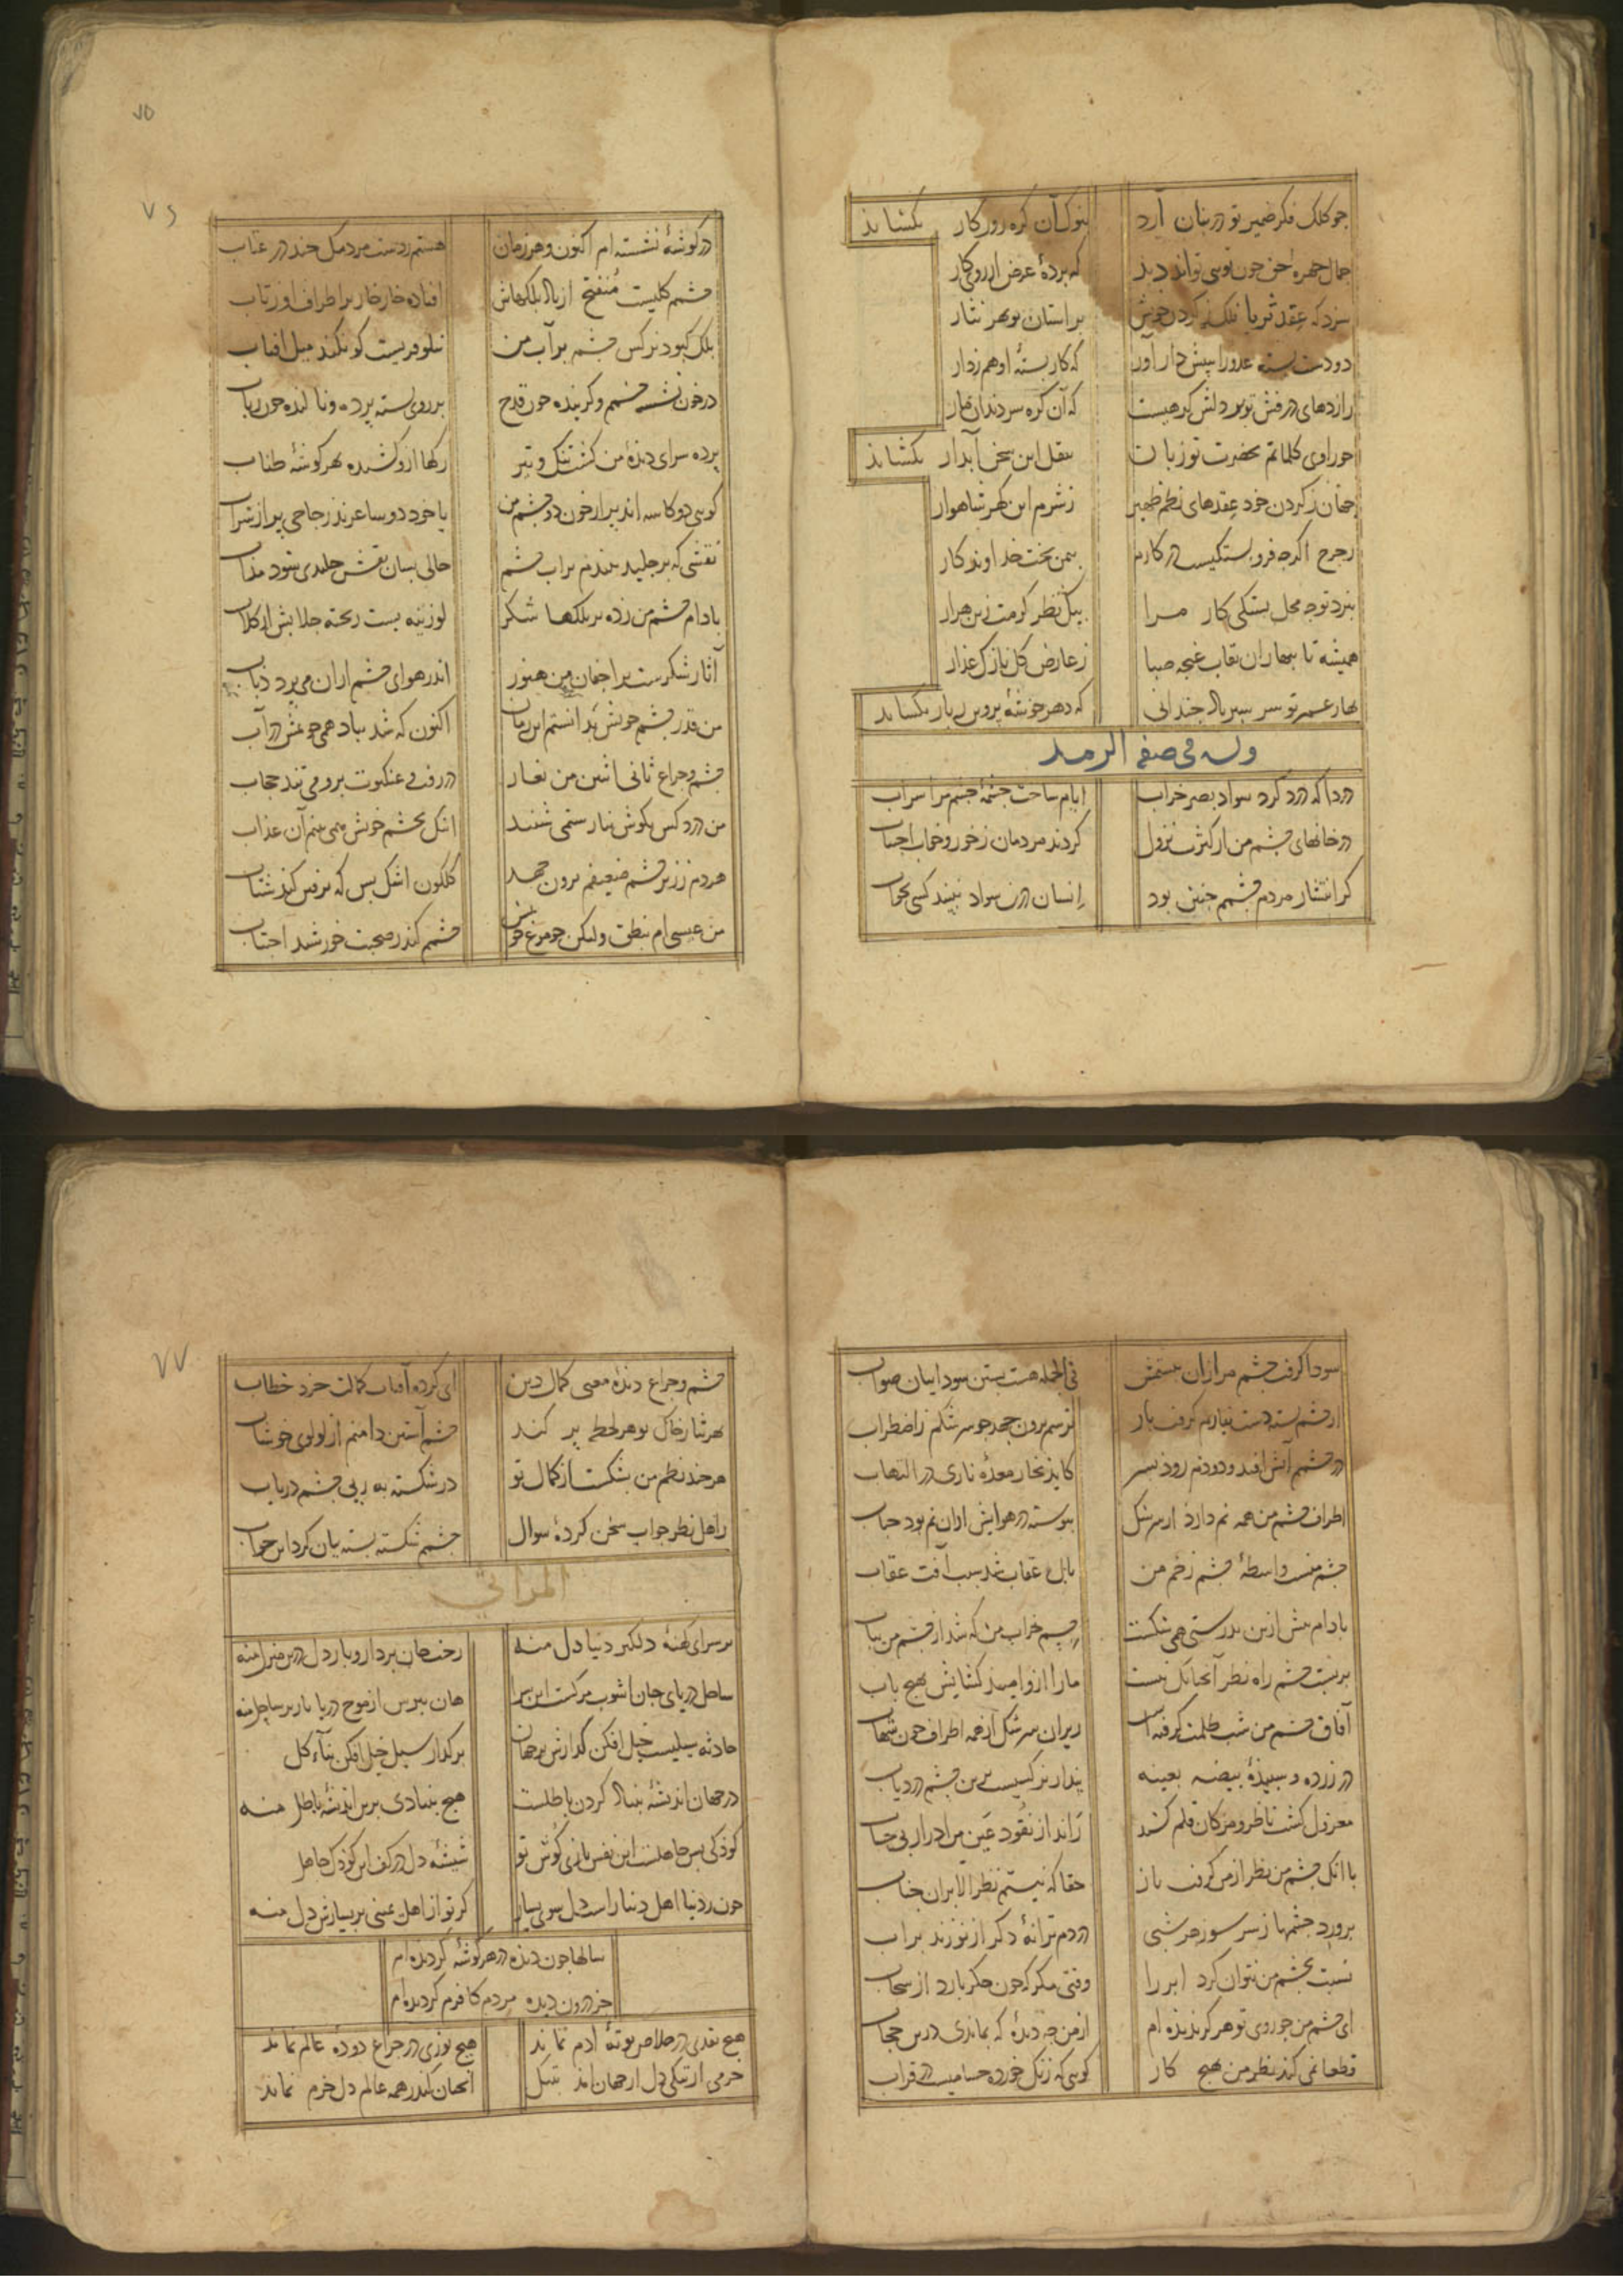 چو کلک فکر ضمیر تو در بنان آرد بنوک آن گره روزکار بکشاید
جمال چهره که پردهٔ عرض از روی کار
سزد که عقد ثریا فلک ز کردن خویش بر استان تو بهر نثار
دو دست بسته عدو را بپیش دار آور که کار بستهٔ او هم ز دار
که آن کره سر دندان مار
چو راوی کلماتم بحضرت تو زبان بنقل این سخن آبدار بکشاید
جهان ز کردن خود عقدهای نظم ظهیر ز شرم این کهر شاهوار
ز چرخ اکرچه فرو بستکیست در کارم بیمن بخت خداوند کار
بنزد تو چه محل بستکی کار مرا بیک نظر کرمت زین هزار
همیشه تا ببهاران نقاب غنچه صبا ز عارض کل نازک عذار
بهار عمر تو سرسبز باد چندانی که دهر خوشهٔ پروین ز بار بکشاید
وله فی صفة الرمد
دردا که درد کرد سواد بصر خراب ایام ساخت چشمهٔ چشم مرا سراب
در خانهای چشم من از کثرت نزول کردند مردمان ز خور و خواب اجتناب
کر انتشار مردم چشمم چنین بود انسان درین سواد نبیند کسی بخواب
۷۵
۷۶
در کوشهٔ نشسته ام اکنون و هر زمان هستم ز دست مردمکی چند در عذاب
چشمم کلیست منفتح از باد پلکهاش افتاده خار خار بر اطراف او ز تاب
پلک کبود نرکس چشم پر آب من نیلوفریست کو نکند میل افتاب
در خون نشسته چشمم و کرینده چون قدح بر روی بسته پرده و نالنده چون رباب
پرده سرای دیدهٔ من کشت تنک و تیر رکها ازو کشیده بهر کوشهٔ طناب
کویی دو کاسه اند پر از خون دو چشم من یا خود دو ساغرند زجاجی پر از شراب
نقشی که بر جلیدیه بندم بر آب چشم حالی بسان نقش جلیدی شود مذاب
بادام چشم من زده بر پلکها شکر لوزینه بست ریخته جلابش از کلاب
آثار شکرست بر اجفان من هنوز اندر هوای چشم ازان می پرد ذباب
من قدر چشم خویش بدانستم این زمان اکنون که شد بباد همی جویمش در آب
چشم و چراغ ثانی اثنین من بغار در رفت و عنکبوت برو می تند حجاب
من درد کس بکوش نیارستمی شنید اینک بچشم خویش همی بینم آن عذاب
هر دم ز زیر چشم ضعیفم برون جهد کلکون اشک بس که برفتن کند شتاب
من عیسی ام بنطق ولیکن چو مرغ خویش چشمم کند ز صحبت خورشید اجتناب
سودا کرفت چشم مرا زان ببستمش فی الجمله هست بستن سودائیان صواب
از چشم بسته دست نیارم کرفت باز ترسم برون جهد چو سرشکم ز اضطراب
در چشمم آتش افتد و دودم رود بسر کاید بخار معدهٔ ناری در التهاب
اطراف چشم من همه نم دارد از سرشک پیوسته در هوایش ازان نم بود حباب
چشم منست واسطهٔ چشم زخم من بابل عقاب شد سبب آفت عقاب
بادام پیش ازین بدرستی همی شکست چشم خراب من که شد از چشم من بتاب
بر بست چشم راه نظر آنچنانک نیست ما را ازو امید کشایش بهیچ باب
آفاق چشم من شب ظلمت کرفته است ریزان سرشک از همه اطراف چون شهاب
در زرده و سپیدهٔ بیضه بعینه پندار نرکسیست برین چشم دردیاب
معزول کشت ناظر و مژکان قلم کشید راند از نقود عین مرا درار بی حساب
با انک چشم من نظر از من کرفت باز حقا که نیستم نظر الا بران جناب
پرورد چشمها ز سر سوز هر شبی در دم ترانهٔ دکر از نو زند بر آب
نسبت بچشم من نتوان کرد ابر را وقتی مکر که خون جکر بارد از سحاب
ای چشم من چو روی تو هرکز ندیده ام از من چه دیدهٔ که بماندی درین حجاب
قطعا نمی کند نظر من بهیچ کار کویی که زنک خورده حسامیست در قراب
۷۷
چشم و چراغ دیدهٔ معنی کمال دین ای کرده آفتاب کمالت خرد خطاب
بهر نثار خاک تو هر لحظه پر کند چشم آستین و دامنم از لولوی خوشاب
هرچند نظم من بشکست از کمال تو در شکسته به ز پی چشم دریاب
ز اهل نظر جواب سخن کردهٔ سوال چشم شکسته بسته بیان کرد این جواب
المراثی
بر سرای کهنهٔ دلکیر دنیا دل منه رخت جان بردار و بار دل درین منزل منه
ساحل دریای جان اشوب مرکست این سرا هان بترس از موج دریا بار بر ساحل منه
حادثه سیلیست خیل افکن کذارش بر جهان بر کذار سیل خیل افکن بنای کل
در جهان اندیشهٔ بنیاد کردن باطلست هیچ بنیادی برین اندیشهٔ باطل منه
کودکی بس جاهلست این نفس بازی کوش تو شیشهٔ دل در کف این کودک جاهل
چون ز دنیا اهل دنیا راست دل سوی یسار کر تو از اهل یمینی بر یسارش دل منه
سالها چون دیده در هر کوشهٔ کردیده ام
جز درون دیده مردم کافرم کر دیده ام
هیچ نقدی در خلاص بوتهٔ آدم نماند هیچ نوری در چراغ دودهٔ عالم نماند
خرمی از تنکی دل از جهان آمد بتنک آنچنان کاندر همه عالم دل خرم نماند